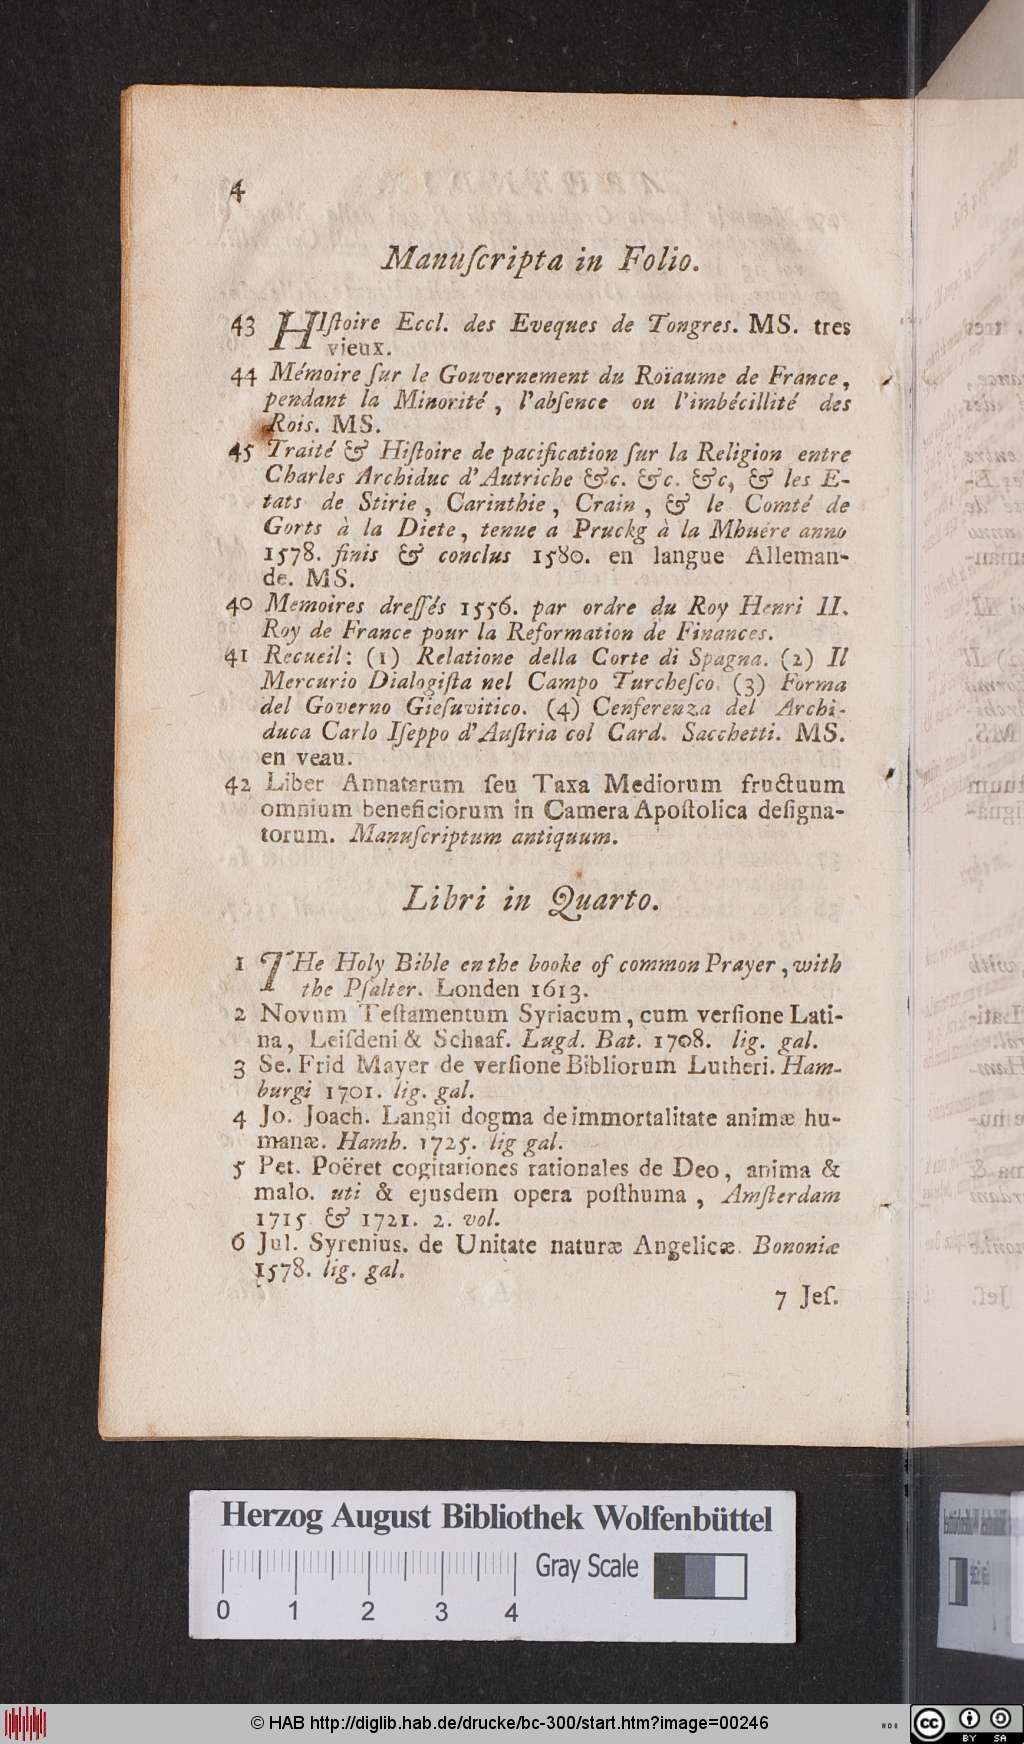 4
Manuſcripta in Folio.
43 HIſtoire Eccl. des Eveques de Tongres. MS. tres
vieux.
44 Mémoire ſur le Gouvernement du Roïaume de France,
pendant la Minorité, l'abſence ou l'imbécillité des
Rois. MS.
45 Traité & Hiſtoire de pacification ſur la Religion entre
Charles Archiduc d'Autriche &c. &c. &c, & les E-
tats de Stirie, Carinthie, Crain, & le Comté de
Gorts à la Diete, tenue a Pruckg à la Mhuére anno
1578. finis & conclus 1580. en langue Alleman-
de. MS.
40 Memoires dreſſés 1556. par ordre du Roy Henri II.
Roy de France pour la Reformation de Finances.
41 Recueil: (1) Relatione della Corte di Spagna. (2) Il
Mercurio Dialogiſta nel Campo Turcheſco. (3) Forma
del Governo Gieſuvitico. (4) Cenferenza del Archi-
duca Carlo Iſeppo d'Auſtria col Card. Sacchetti. MS.
en veau.
42 Liber Annatarum ſeu Taxa Mediorum fructuum
omnium beneficiorum in Camera Apoſtolica deſigna-
torum. Manuſcriptum antiquum.
Libri in Quarto.
1 THe Holy Bible en the booke of common Prayer, with
the Pſalter. Londen 1613.
2 Novum Teſtamentum Syriacum, cum verſione Lati-
na, Leiſdeni & Schaaf. Lugd. Bat. 1708. lig. gal.
3 Se. Frid Mayer de verſione Bibliorum Lutheri. Ham-
burgi 1701. lig. gal.
4 Jo. Joach. Langii dogma de immortalitate animæ hu-
manæ. Hamb. 1725. lig gal.
5 Pet. Poëret cogitationes rationales de Deo, anima &
malo. uti & ejusdem opera poſthuma, Amſterdam
1715 & 1721. 2. vol.
6 Jul. Syrenius. de Unitate naturæ Angelicæ. Bononiæ
1578. lig. gal.
7 Jeſ.
Herzog August Bibliothek Wolfenbüttel
Gray Scale
0 1 2 3 4
© HAB http://diglib.hab.de/drucke/bc-300/start.htm?image=00246
cc BY SA